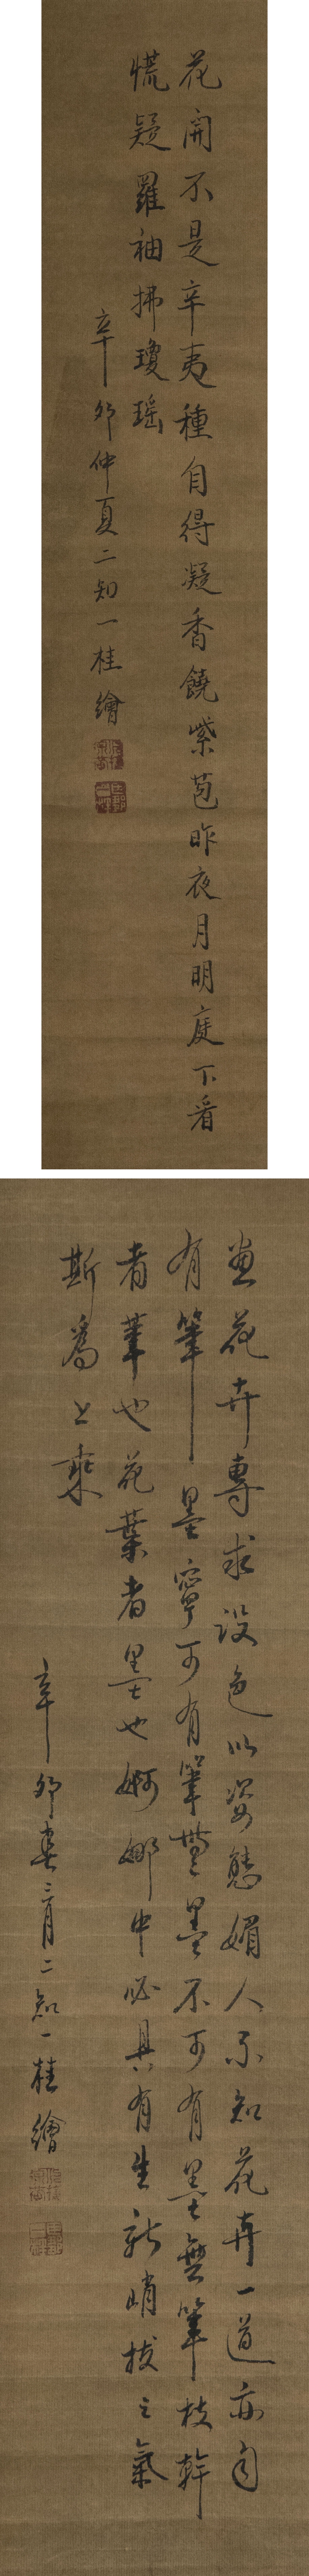 花開不是辛夷種自得凝香饒紫苞昨夜月明庭下看
慌疑羅袖拂瓊瑤
辛夘仲夏二知一桂繪
畫花卉專求設色以姿態媚人不知花卉一道亦自
有筆墨寧可有筆無墨不可有墨無筆枝幹
者筆也花葉者墨也婀娜中必具有生新峭拔之氣
斯爲上乘
辛夘春三月二知一桂繪